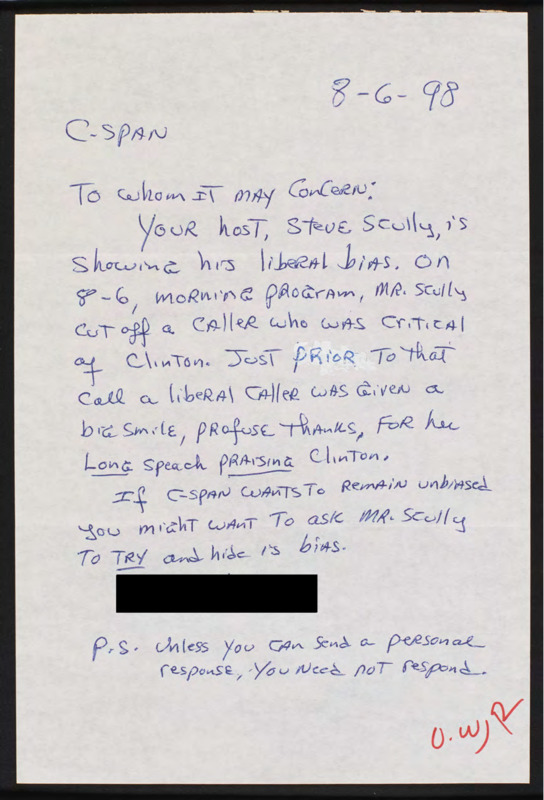 8-6-98
C-SPAN
To whom IT MAY CONCERN:
YOUR host, Steve Scully, is
showing his liberal bias. On
8-6, morning program, Mr. Scully
cut off a caller who was critical
of Clinton. Just prior to that
call a liberal caller was given a
big smile, profuse thanks, for her
Long speach praising Clinton.
If C-SPAN wants to remain unbiased
you might want to ask Mr. Scully
to TRY and hide is bias.
P.S. Unless you can send a personal
response, you need not respond.